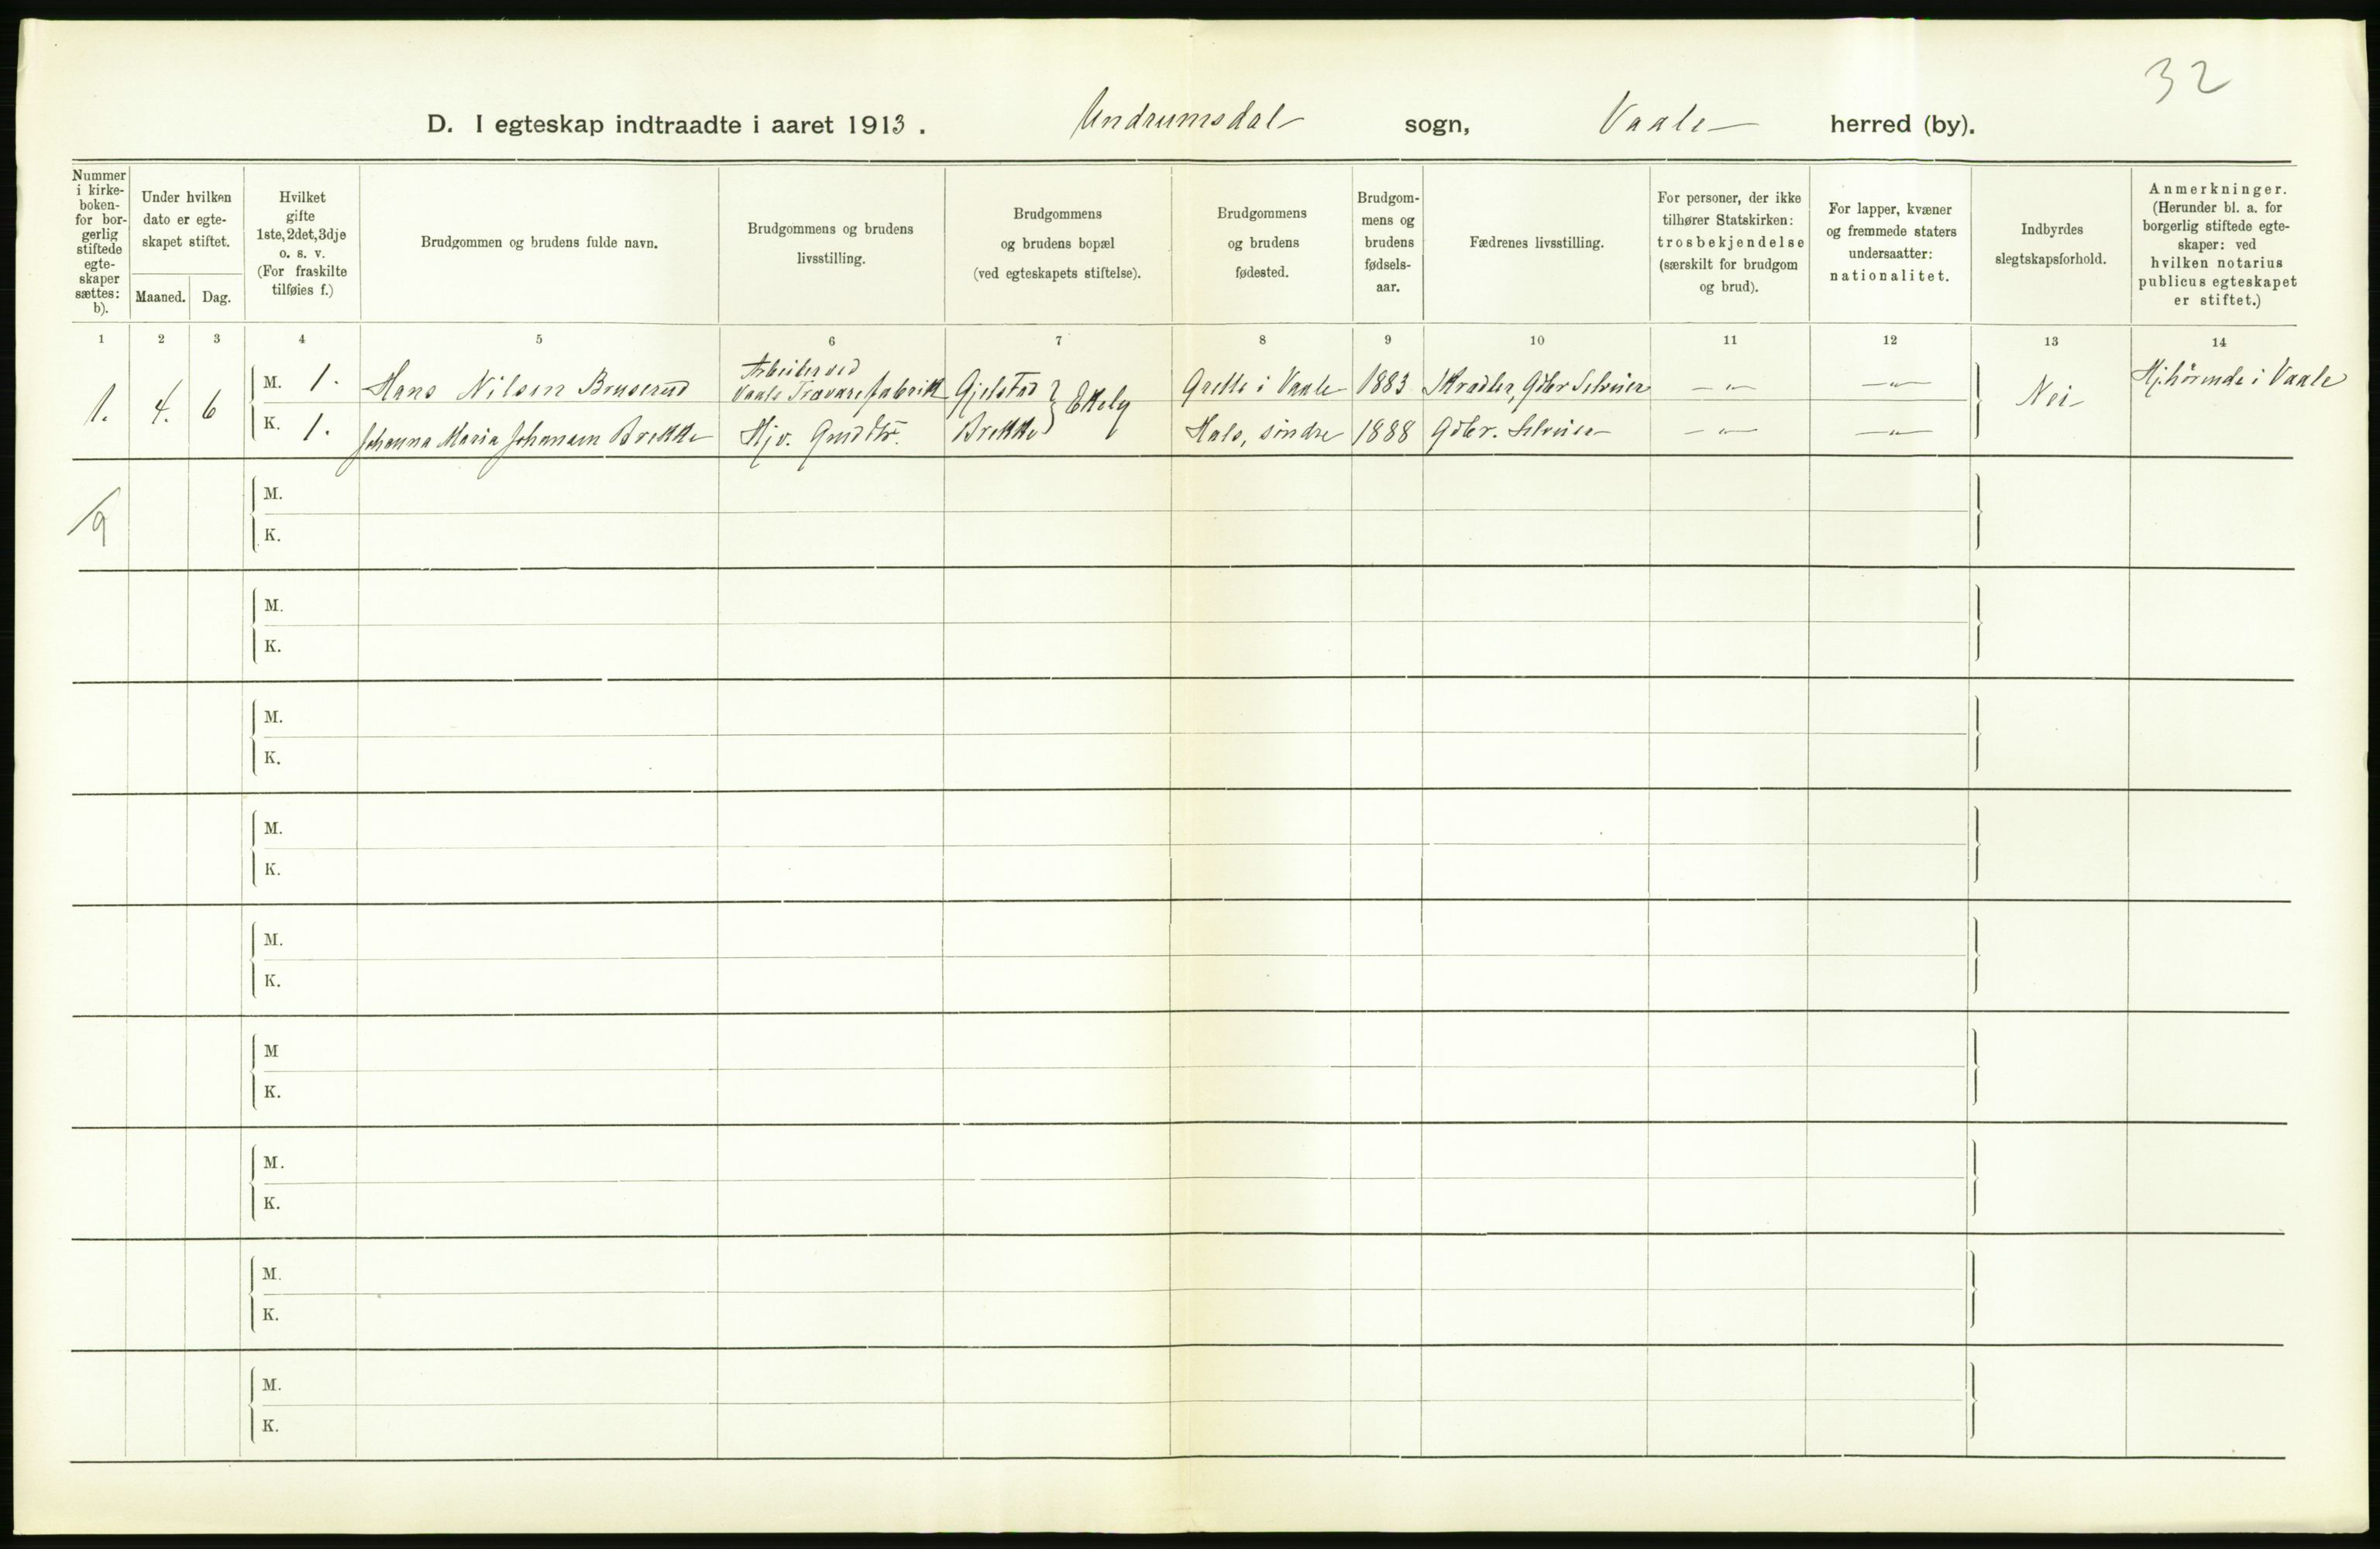 32
D. I egteskap indtraadte i aaret 1913. Undrumsdal sogn, Vaale herred (by).
Nummer i kirke-boken-for bor-gerlig stiftede egte-skaper sættes: b).
Under hvilken dato er egte-skapet stiftet.
Maaned. Dag.
Hvilket gifte 1ste, 2det, 3dje o. s. v. (For fraskilte tilføies f.)
Brudgommen og brudens fulde navn.
Brudgommens og brudens livsstilling.
Brudgommens og brudens bopæl (ved egteskapets stiftelse).
Brudgommens og brudens fødested.
Brudgom-mens og brudens fødsels-aar.
Fædrenes livsstilling.
For personer, der ikke tilhører Statskirken: trosbekjendelse (særskilt for brudgom og brud).
For lapper, kvæner og fremmede staters undersaatter: nationalitet.
Indbyrdes slegtskapsforhold.
Anmerkninger. (Herunder bl. a. for borgerlig stiftede egte-skaper: ved hvilken notarius publicus egteskapet er stiftet.)
1 2 3 4 5 6 7 8 9 10 11 12 13 14
1. 4. 6
M. 1. Hans Nilsen Bruserud Arbeider ved Vaale Trævarefabrikk Gjelstad Grette i Vaale 1883 Skrædder, Gbr Selveier — " — — " — Nei Hjhörende i Vaale
K. 1. Johanna Maria Johansen Brekke Hjv. Gmd dtr. Brekke Hals, söndre 1888 Gbr. Selveier — " — — " —
/9
M.
K.
M.
K.
M.
K.
M.
K.
M.
K.
M
K.
M.
K.
M.
K.
M.
K.